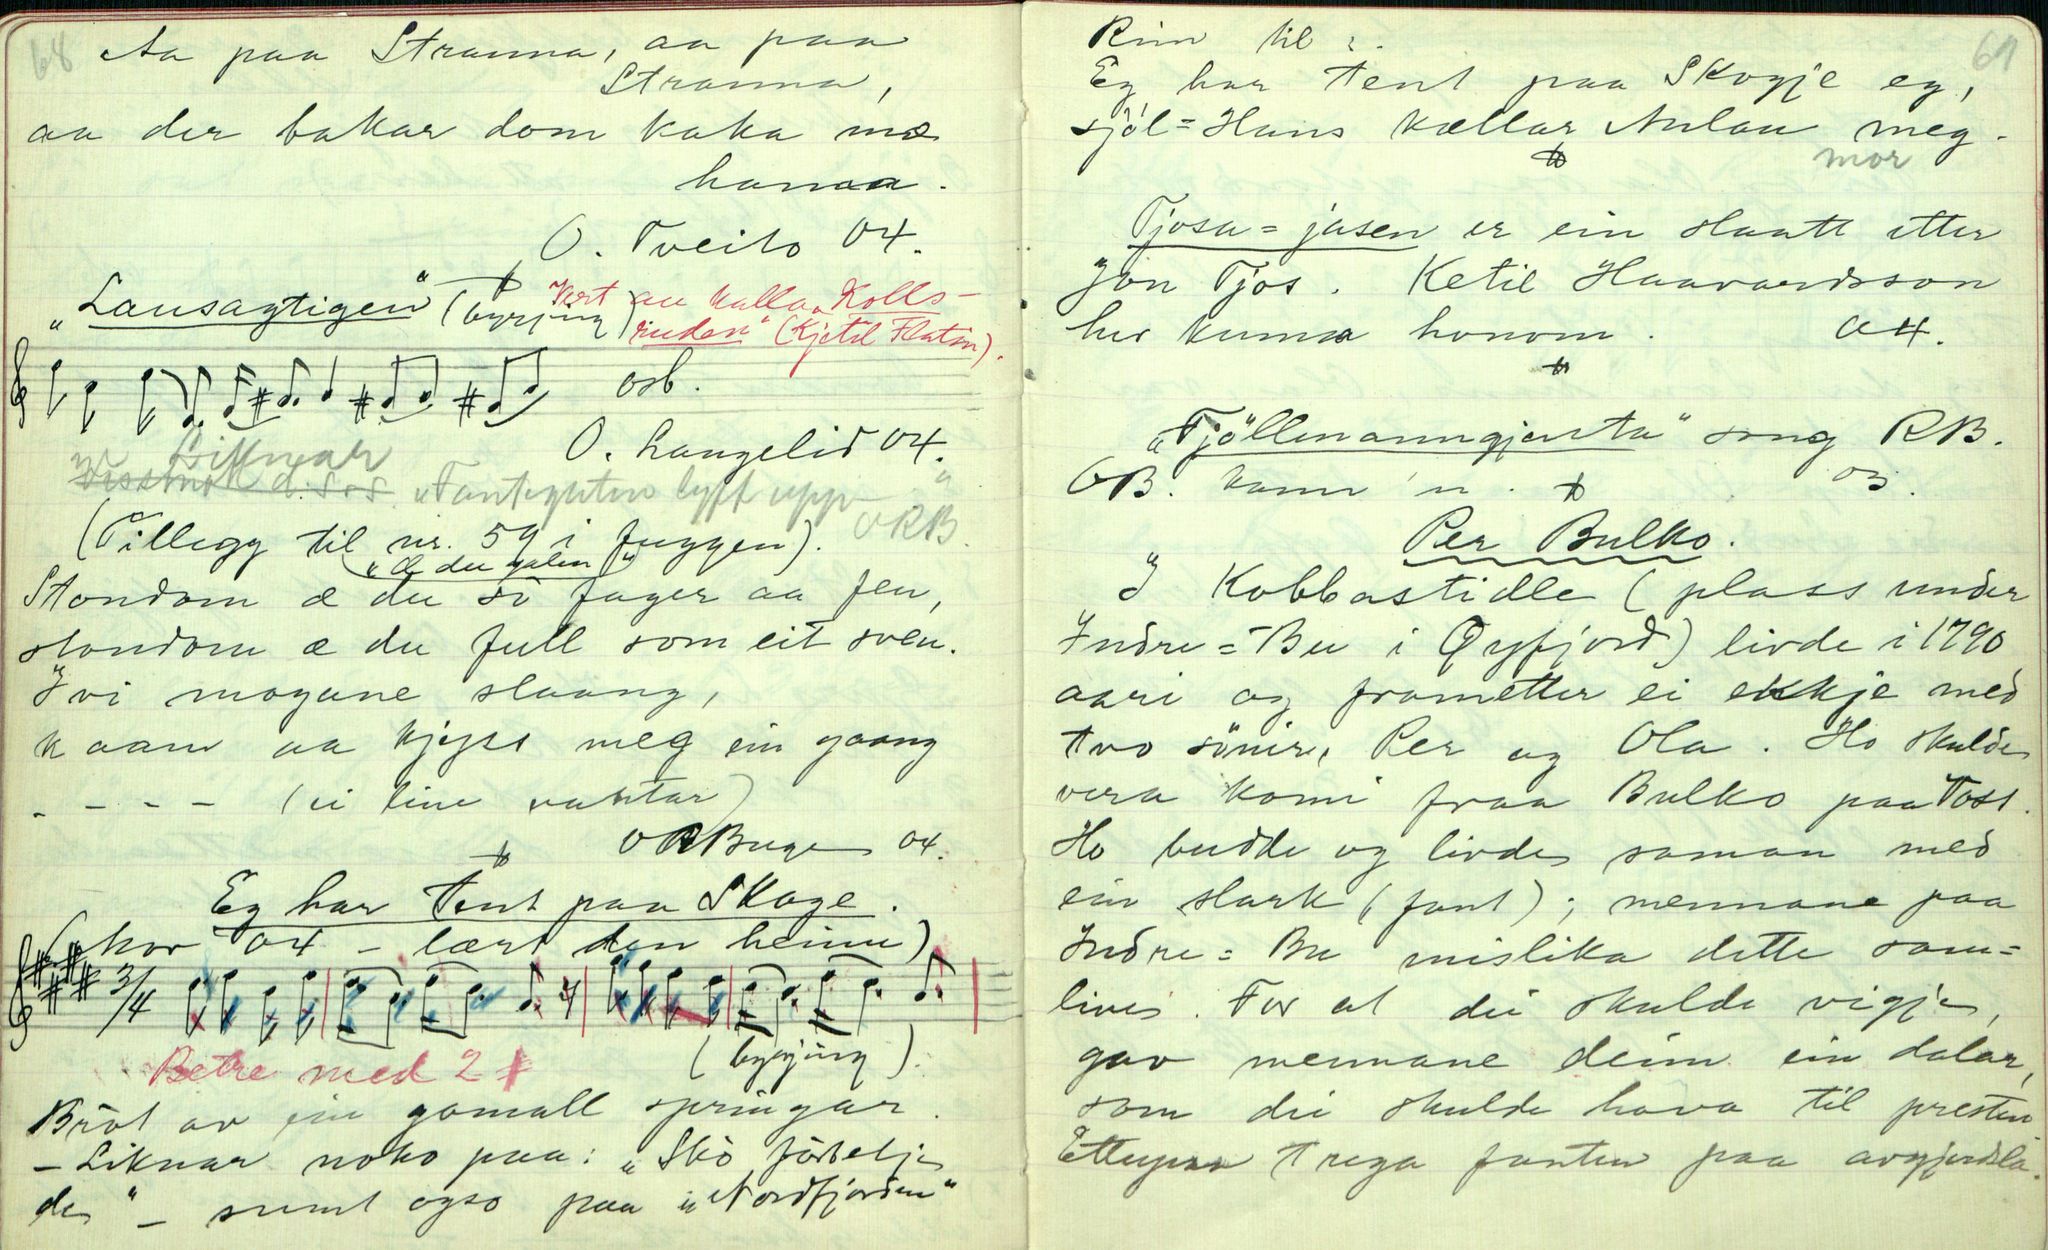 68
Aa paa Stranna, aa paa
Stranna,
aa der bakar dom kaka mæ
hanaa.
O. Tveito 04.
„Lausagtigen" (byrjing)
Vert au kalla „Kolls-
ruden" (Kjetil Flatin).
osb.
O. Langelid 04.
Liknar
„Fantejenten lyft upp — "
ORB.
(Tillegg til nr. 59 i fuggen).
„Æ du galen"
Stondom æ du so fager aa fen,
stondom æ du full som eit sven.
Ivi mogane slaang,
kaam aa kjyss meg ein gaang
- - - - (ei line vantar)
ORBuge 04.
Eg har tent paa Skage.
(skor 04 - lært den heime)
3/4
Betre med 2 #
(byrjing).
Bröt av ein gamall springar.
- Liknar noko paa: „Skö
de" - sumt ogso paa „Nordfjorden"
69
Rim til:
Eg har tent paa Skogje eg,
sjöl-Hans kællar Aslau meg.
mor
Tjosa-jasen er ein slaatt etter
Jon Tjos. Ketil Haavardsson
her kunna honom. 04.
„Tjöllmanngjenta" song RB.
OB. kann 'n. 03.
Per Bulko.
I Kobbastidle (plass under
Indre-Bu i Øyfjord) livde i 1790
aari og frametter ei ekkje med
tvo sönir, Per og Ola. Ho skulde
vera komi fraa Bulko paa Voss.
Ho budde og livde saman med
ein slark (fant); mennane paa
Indre-Bu mislika dette sam-
livet. For at dei skulde vigje,
gav mennane deim ein dalar,
som dei skulde hava til presten
Etterpaa trega fanten paa